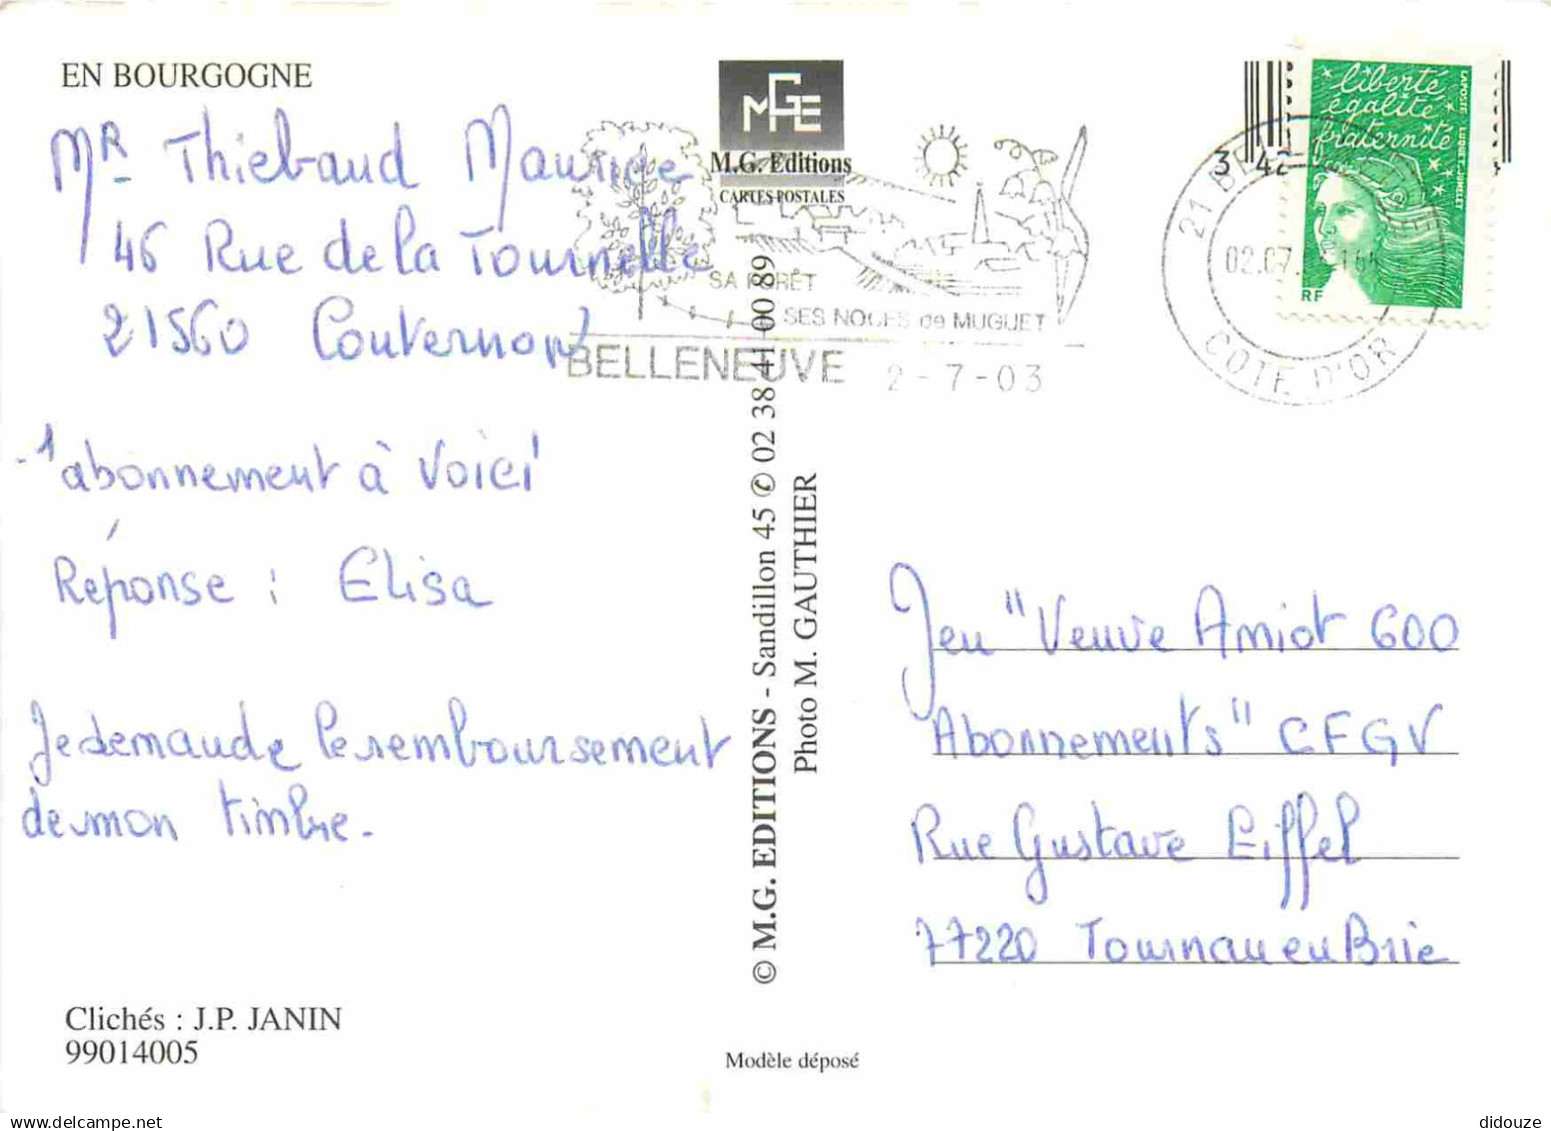 EN BOURGOGNE
Mr Thiebaud Maurice
46 Rue de la Tournelle
21560 Couternon
-1 abonnement à Voici
Réponse : Elisa
Je demande le remboursement
de mon timbre.
Clichés : J.P. JANIN
99014005
MGE
M.G. Editions
CARTES POSTALES
SA FORÊT
SES NOCES de MUGUET
BELLENEUVE 2-7-03
© M.G. EDITIONS - Sandillon 45 ✆ 02 38 41 00 89
Photo M. GAUTHIER
Modèle déposé
liberté
égalité
fraternité
LA POSTE
RF
3 42
21 BELLENEUVE
02.07.
COTE D'OR
Jeu "Veuve Amiot 600
Abonnements" CFGV
Rue Gustave Eiffel
77220 Tournan en Brie
didouze